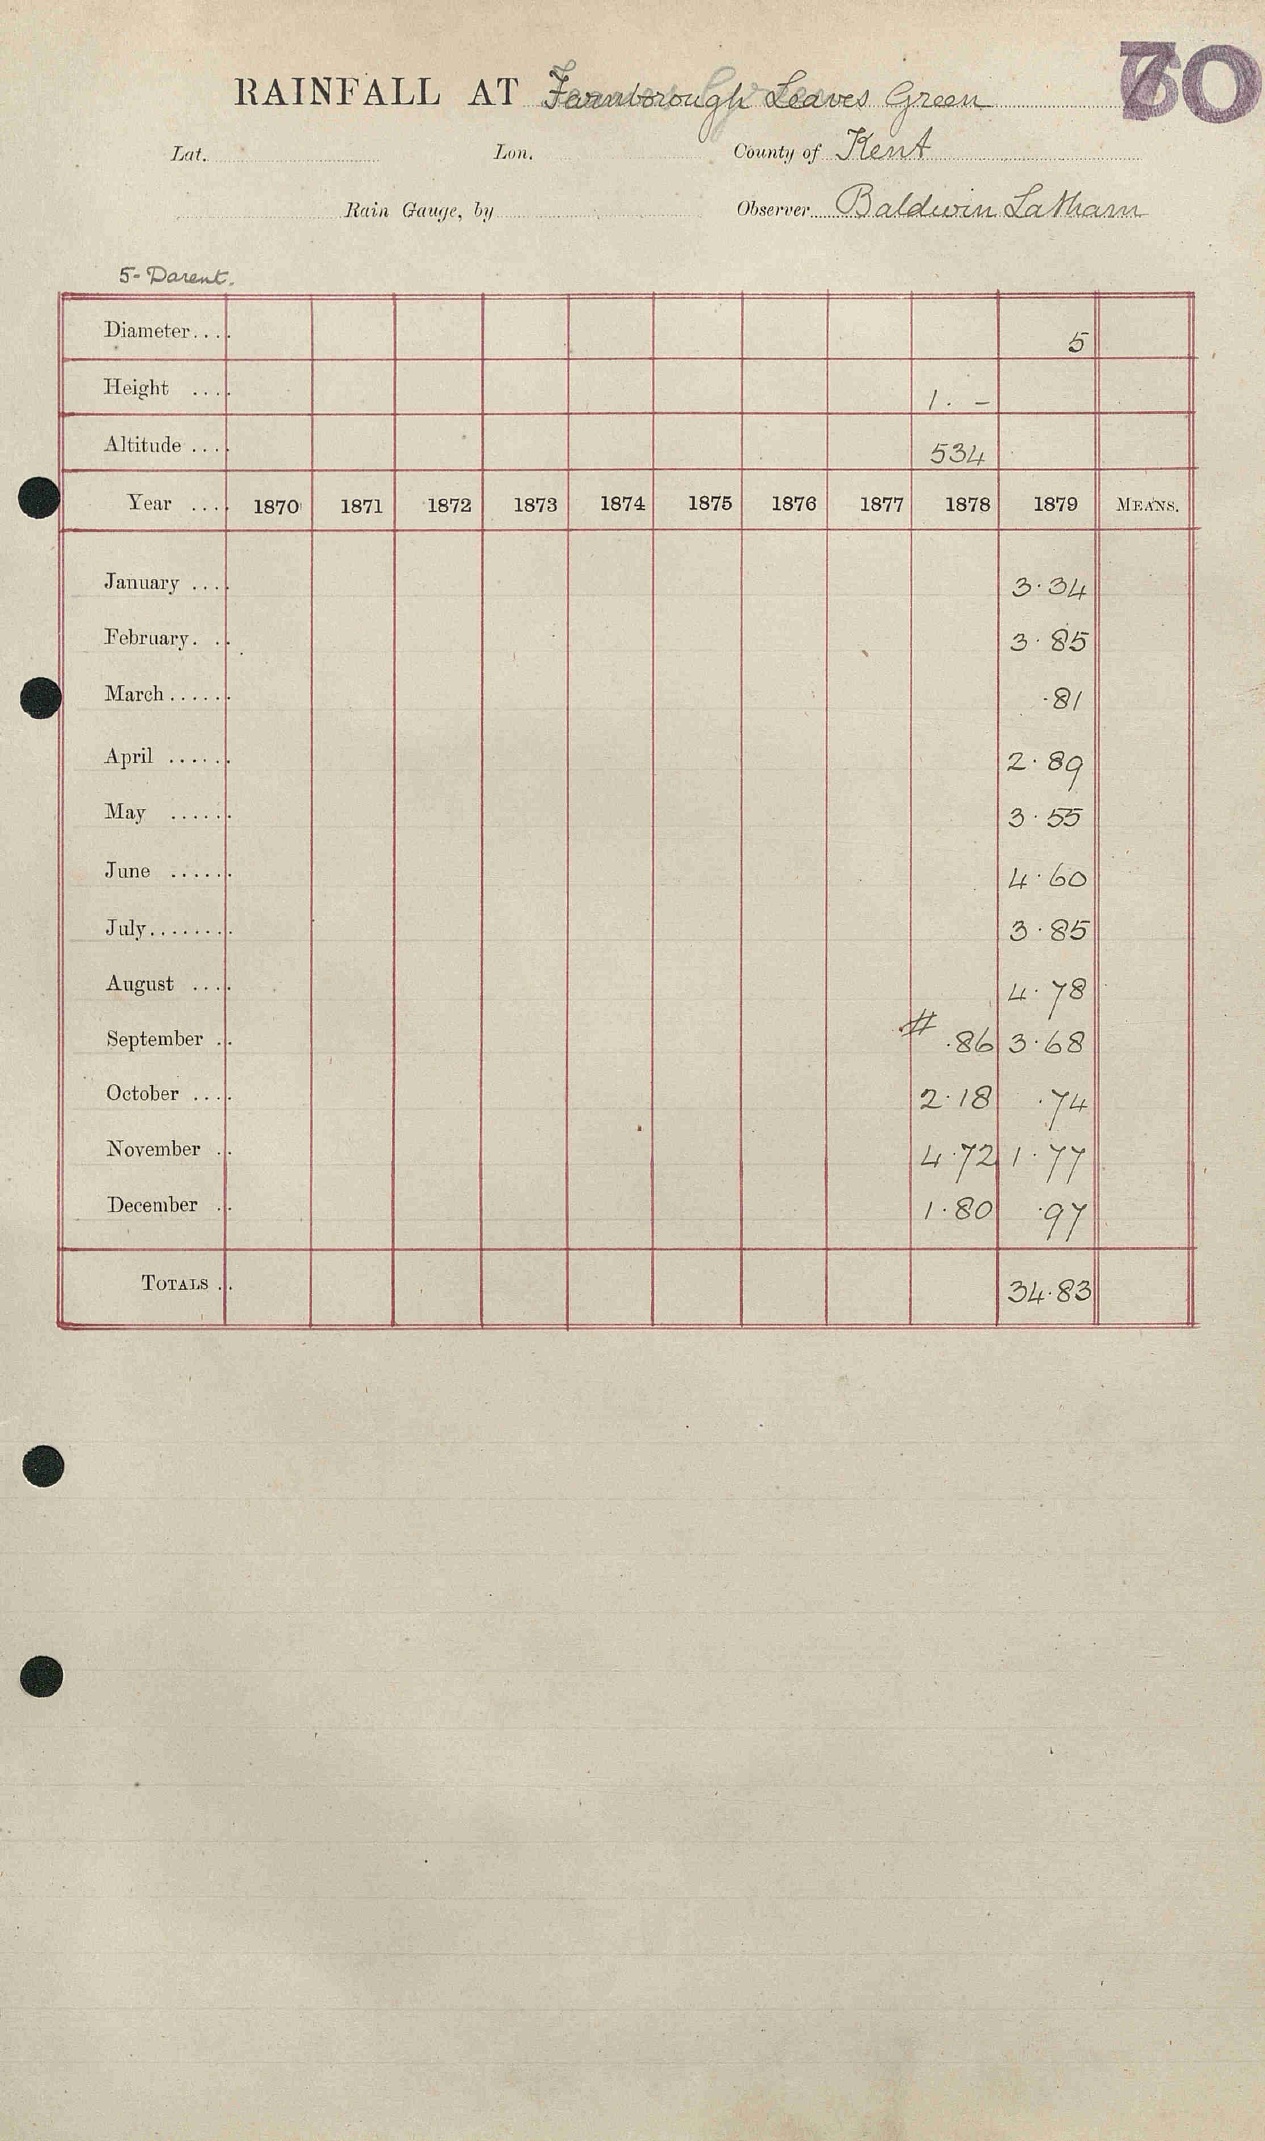 RAINFALL AT Farnborough Leaves Green
Lat. Lon. County of Kent
Rain Gauge, by Observer Baldwin Latham
5 - Darent.
Diameter.... 5
Height .... 1. -
Altitude .... 534
Year .... 1870 1871 1872 1873 1874 1875 1876 1877 1878 1879 MEANS.
January .... 3.34
February. .. 3.85
March ...... .81
April ...... 2.89
May ...... 3.55
June ...... 4.60
July........ 3.85
August .... 4.78
September .. # .86 3.68
October .... 2.18 .74
November .. 4.72 1.77
December .. 1.80 .97
TOTALS .. 34.83